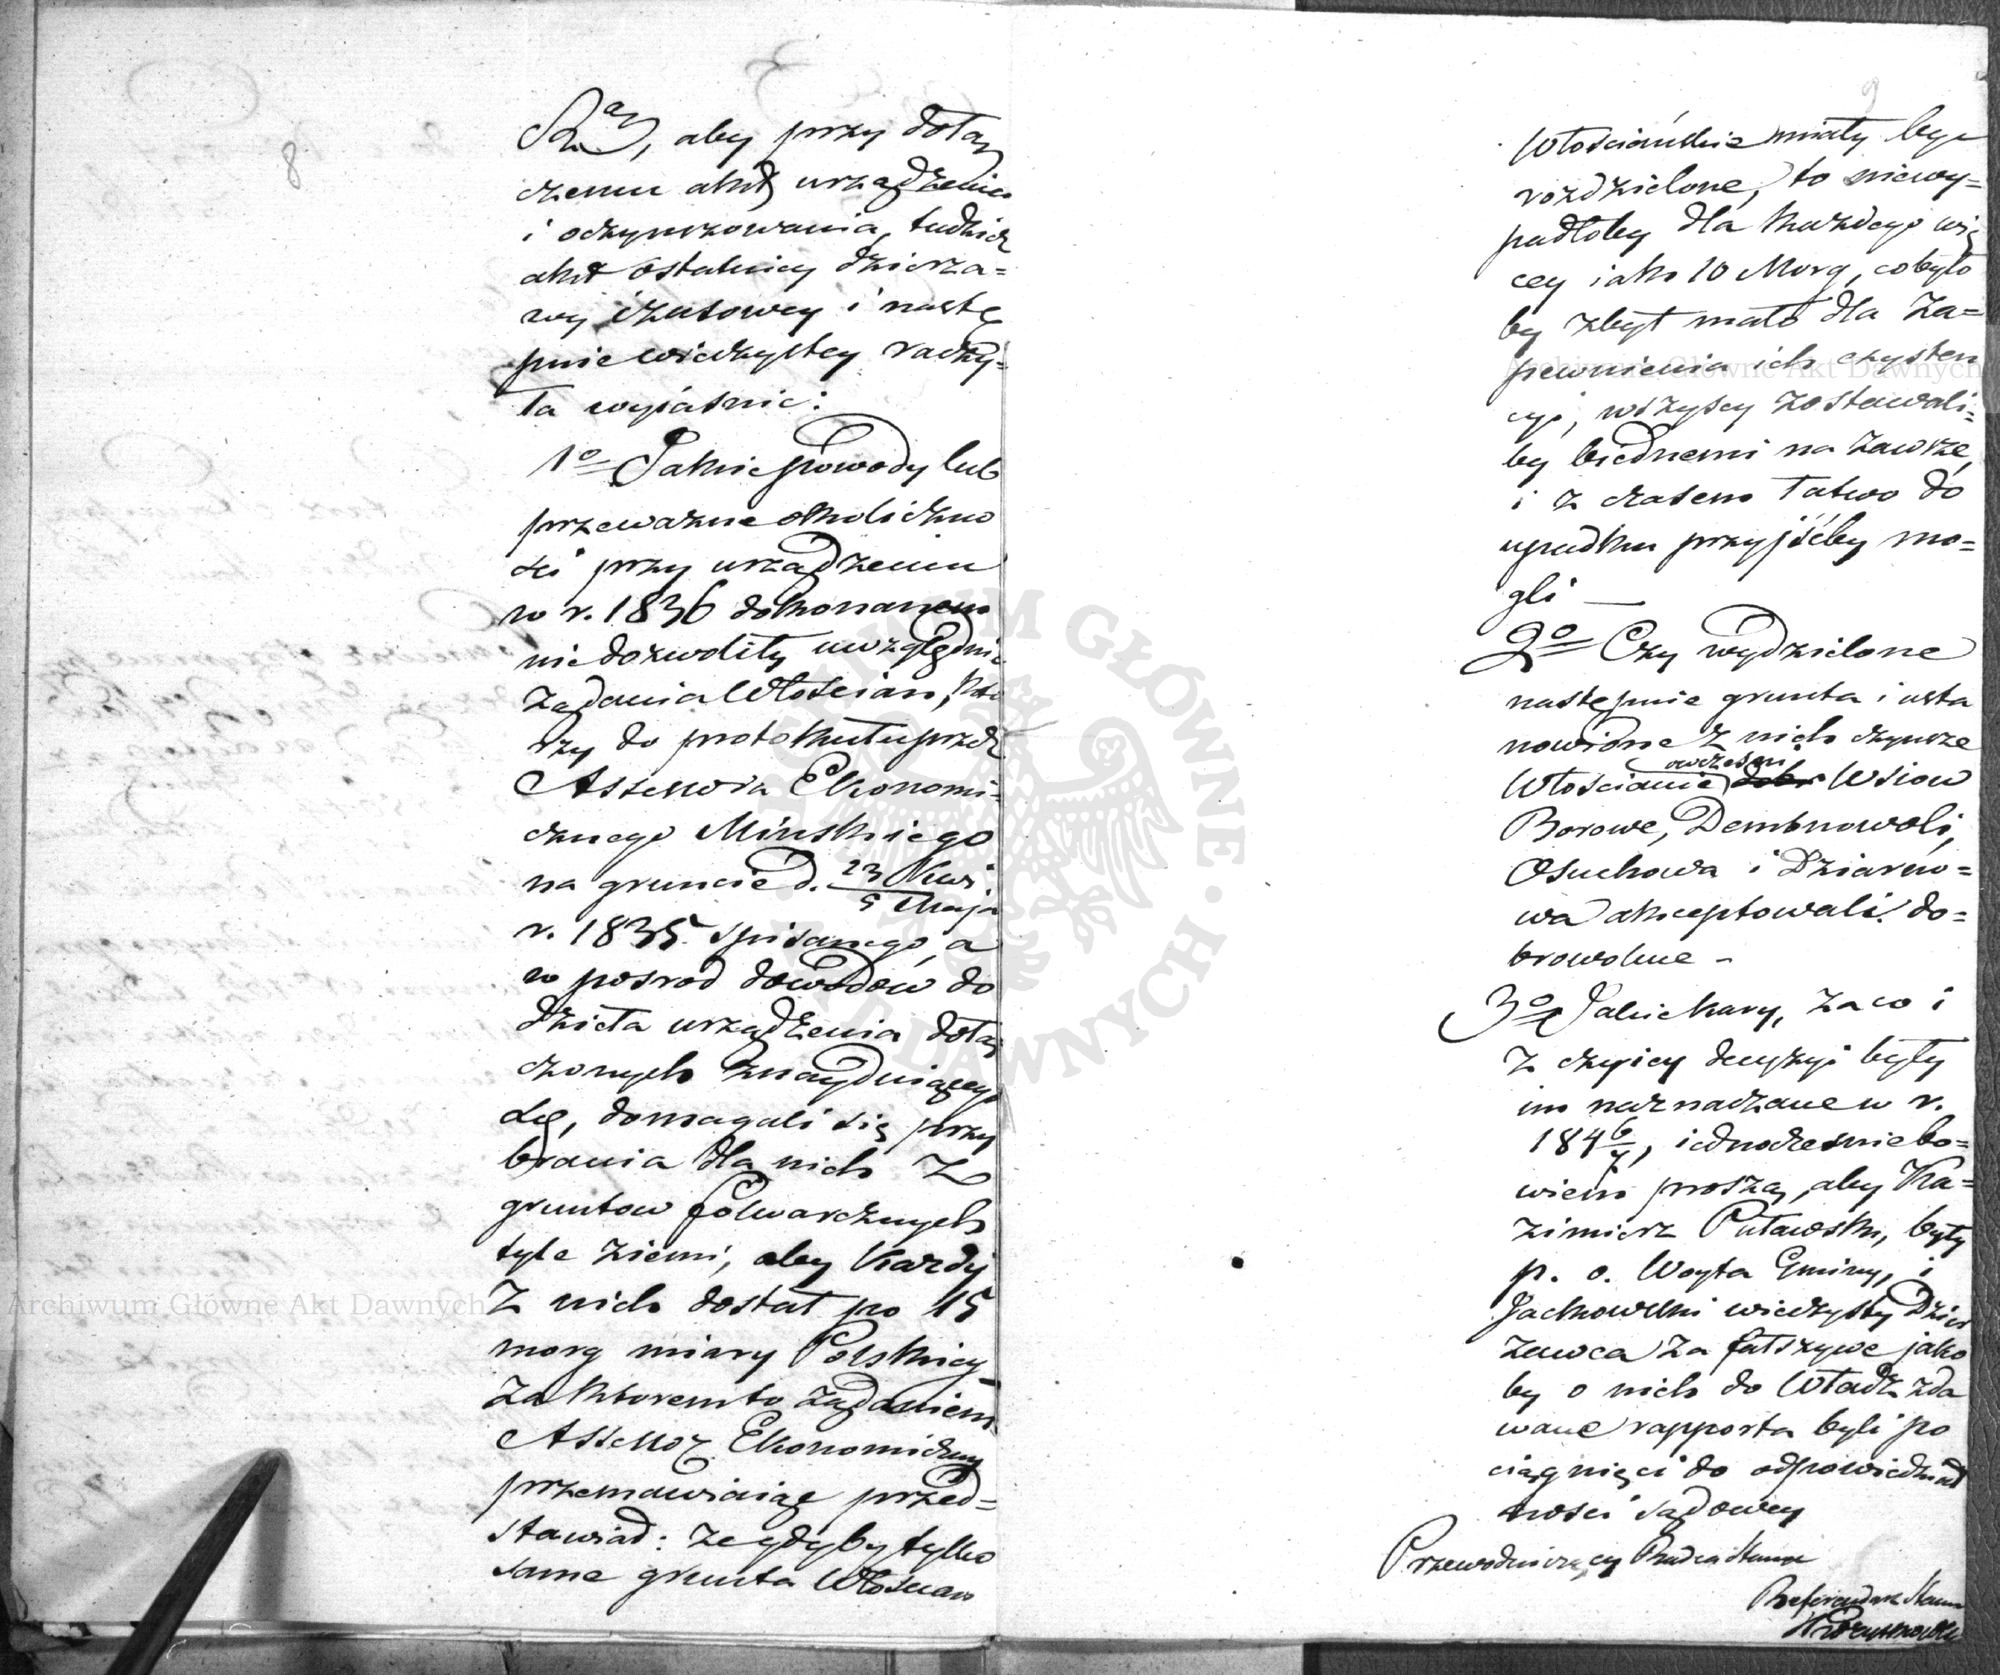 8
aby przy dołą
czeniu akt urządzenia
i oczynszowania, tudzież
akt ostatniey dzierża=
wy czasowey i nastę
pnie wieczystey raczy=
ła wyjaśnić:
1o Jakie powody lub
przeważne okoliczno
ści przy urządzeniu
w r. 1836 dokonanem
niedozwoliły uwzględnić
żądania Włościan, któ
rzy do protokułu przez
Assessora Ekonomi=
cznego Mińskiego
na gruncie d. 23 Kwi. / 5 Maja
r. 1835 spisanego, a
w pośrod dowodów do
dzieła urządzenia dołą
czonych znayduiącego
się, domagali się przy
brania dla nich z
gruntow folwarcznych
tyle ziemi, aby każdy
z nich dostał po 15
morg miary Polskiey
za ktorem to żądaniem
Assessor Ekonomiczny
przemawiaiąc przed=
stawiał: że gdyby tylko
same grunta Włościań
9
Włościańskie miały być
rozdzielone, to niewy=
padłoby dla każdego wię
cey iako 10 Morg, co było
by zbyt mało dla za=
pewnienia ich exysten
cyi, wszyscy zostawali=
by biednemi na zawsze,
i z czasem łatwo do
upadku przyjśćby mo=
gli —
2o Czy wydzielone
następnie grunta i usta
nowione z nich czynsze
owcześni
Włościanie dobr Wsiow
Borowe, Dembnowoli,
Osuchowa i Dziarno=
wa akceptowali do=
browolnie -
3o Jakie kary, za co i
z czyiey decyzyi były
im naznaczane w r.
1846/7, iednocześnie bo=
wiem proszą, aby Ka=
zimierz Puławski, były
p. o. Woyta Gminy, i
Jackowski wieczysty Dzier
żawca za fałszywe jako
by o nich do Władz zda
wane rapporta byli po
ciągnięci do odpowiedzial
ności sądowey
Przewodniczący Radca Stanu
Referendarz Stanu
Archiwum Główne Akt Dawnych
Archiwum Główne Akt Dawnych
ARCHIWUM GŁÓWNE AKT DAWNYCH